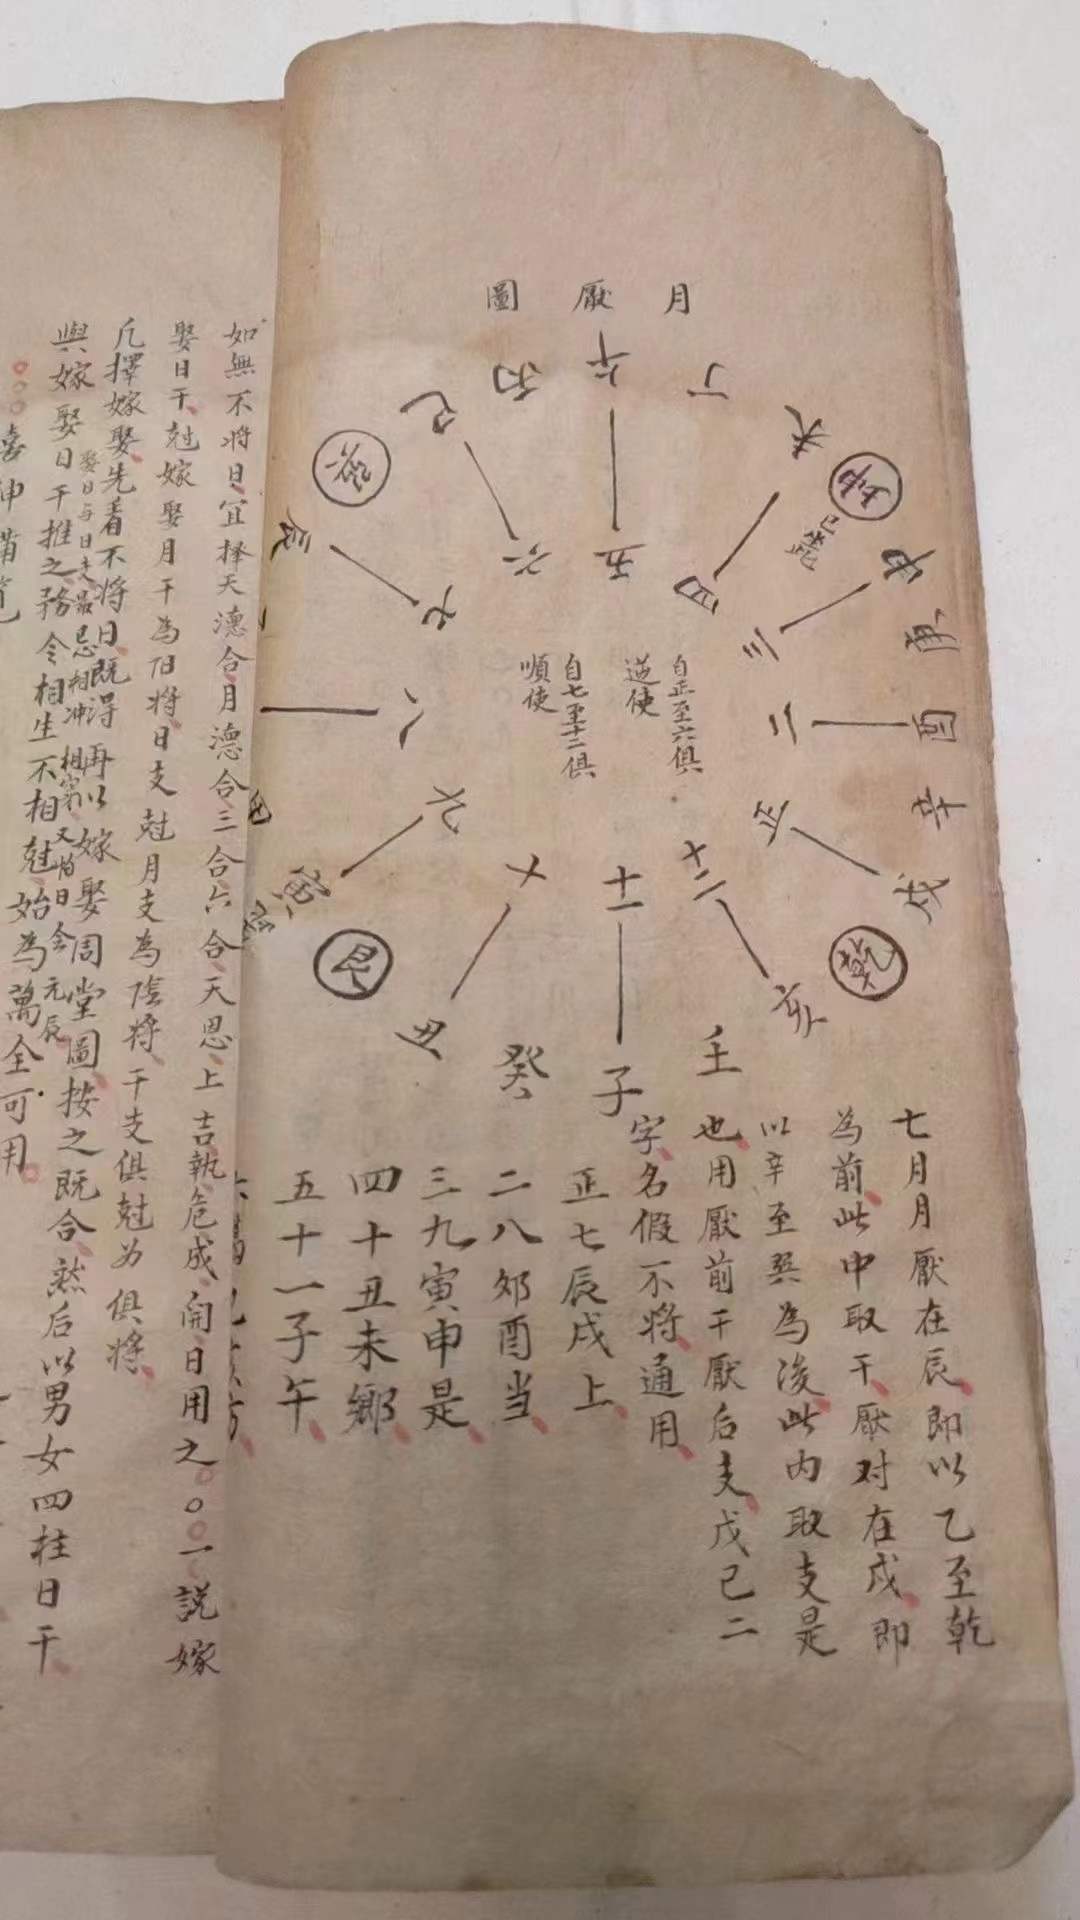 月厭圖
午
丁
未
坤
己
申
庚
酉
辛
戌
乾
亥
壬
子
癸
丑
艮
寅
甲
辰
巽
巳
丙
五
四
三
二
正
十二
十一
十
九
八
七
六
自正至六俱
逆使
自七至十二俱
順使
七月月厭在辰即以乙至乾
為前此中取干厭对在戌即
以辛至巽為後此内取支是
也用厭前干厭后支戊己二
字名假不将通用
正七辰戌上
二八夘酉当
三九寅申是
四十丑未鄉
五十一子午
如無不将日宜择天德合月德合三合六合天恩上吉執危成開日用之一説嫁
娶日干尅嫁娶月干為陽将日支尅月支為陰将干支俱尅为俱将
凡擇嫁娶先看不将日既得再以嫁娶周堂圖按之既合然后以男女四柱日干
娶日与日夫最忌相冲相穿又怕日会元辰
與嫁娶日干推之務令相生不相尅始為萬全可用
喜神